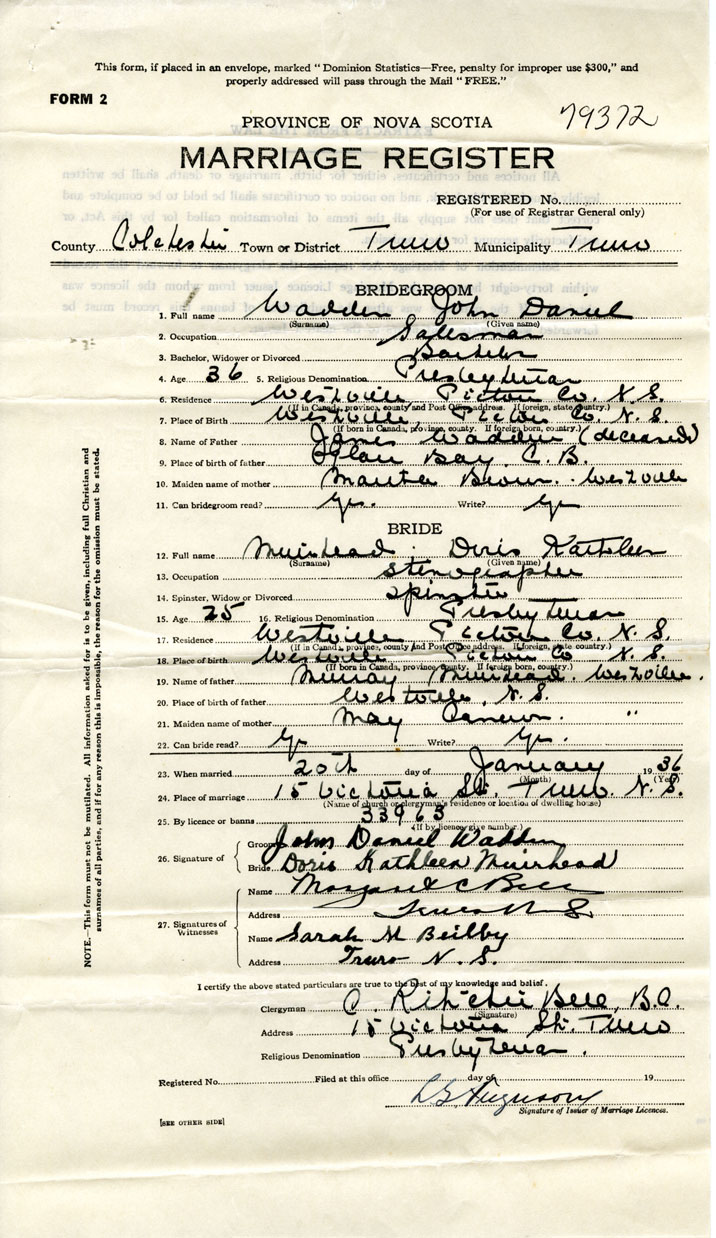 This form, if placed in an envelope, marked "Dominion Statistics—Free, penalty for improper use $300," and
properly addressed will pass through the Mail "FREE."
FORM 2
79372
PROVINCE OF NOVA SCOTIA
MARRIAGE REGISTER
REGISTERED No.
(For use of Registrar General only)
County Colchester Town or District Truro Municipality Truro
BRIDEGROOM
1. Full name Wadden John Daniel
(Surname) (Given name)
2. Occupation Salesman
3. Bachelor, Widower or Divorced Bachelor
4. Age 36 5. Religious Denomination Presbyterian
6. Residence Westville Pictou Co. N.S.
(If in Canada, province, county and Post Office address. If foreign, state country.)
7. Place of Birth Westville, Pictou Co. N.S.
(If born in Canada, province, county. If foreign born, country.)
8. Name of Father James Wadden (deceased)
9. Place of birth of father Bay, C.B.
10. Maiden name of mother Martha Brown. Westville
11. Can bridegroom read? Yes. Write? Yes
BRIDE
12. Full name Muirhead. Doris Kathleen
(Surname) (Given name)
13. Occupation Stenographer
14. Spinster, Widow or Divorced Spinster
15. Age 25 16. Religious Denomination Presbyterian
17. Residence Westville Pictou Co. N.S.
(If in Canada, province, county and Post Office address. If foreign, state country.)
18. Place of birth Westville Pictou Co N.S.
(If born in Canada, province, county. If foreign born, country.)
19. Name of father Murray Muirhead. Westville.
20. Place of birth of father Westville, N.S.
21. Maiden name of mother May Cameron. "
22. Can bride read? Yes Write? Yes.
23. When married 20th day of January 1936
(Month) (Year)
24. Place of marriage 15 Victoria St. Truro. N.S.
(Name of church or clergyman's residence or location of dwelling house)
25. By licence or banns 33963
(If by licence, give number.)
26. Signature of Groom John Daniel Wadden
Bride Doris Kathleen Muirhead
27. Signatures of Witnesses
Name Margaret C Bell
Address Truro N.S.
Name Sarah M Beilby
Address Truro N.S.
I certify the above stated particulars are true to the best of my knowledge and belief.
Clergyman C. Ritchie Bell, B.A.
(Signature)
Address 15 Victoria St. Truro
Religious Denomination Presbyterian.
Registered No. Filed at this office day of 19
Ferguson
Signature of Issuer of Marriage Licences.
[SEE OTHER SIDE]
NOTE.—This form must not be mutilated. All information asked for is to be given, including full Christian and
surnames of all parties, and if for any reason this is impossible, the reason for the omission must be stated.